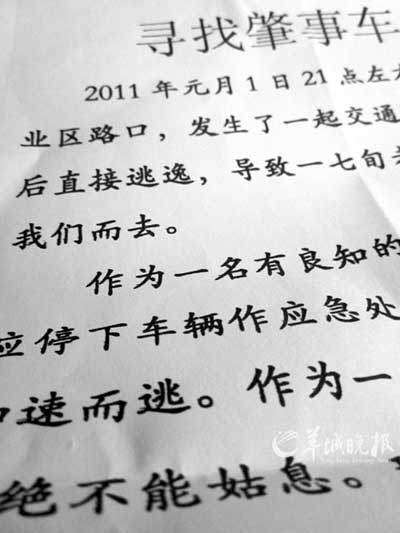 寻找肇事车
2011 年元月 1 日 21 点左
业区路口，发生了一起交通
后直接逃逸，导致一七旬老
我们而去。
作为一名有良知的
应停下车辆作应急处
速而逃。作为一
绝不能姑息。
羊城晚报